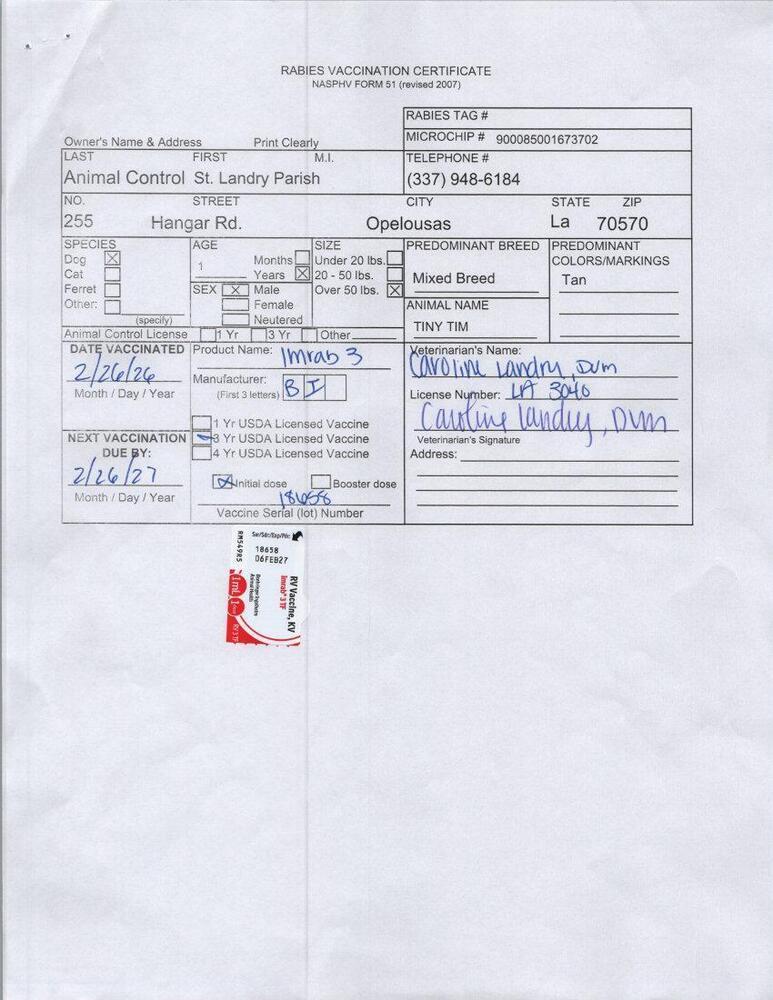 RABIES VACCINATION CERTIFICATE
NASPHV FORM 51 (revised 2007)
RABIES TAG #
Owner's Name & Address Print Clearly
MICROCHIP # 900085001673702
LAST FIRST M.I.
TELEPHONE #
Animal Control St. Landry Parish
(337) 948-6184
NO. STREET CITY STATE ZIP
255 Hangar Rd. Opelousas La 70570
SPECIES AGE SIZE PREDOMINANT BREED PREDOMINANT
COLORS/MARKINGS
Dog X 1 Months Under 20 lbs.
Cat Years X 20 - 50 lbs.
Mixed Breed Tan
Ferret SEX X Male Over 50 lbs. X
Other: Female
ANIMAL NAME
(specify) Neutered
TINY TIM
Animal Control License 1 Yr 3 Yr Other
DATE VACCINATED Product Name: Imrab 3
Veterinarian's Name:
Caroline Landry, DVM
2/26/26
Month / Day / Year
Manufacturer: B I
(First 3 letters)
License Number: LA 3040
Caroline Landry, DVM
1 Yr USDA Licensed Vaccine
NEXT VACCINATION 3 Yr USDA Licensed Vaccine
Veterinarian's Signature
DUE BY: 4 Yr USDA Licensed Vaccine
Address:
2/26/27
X Initial dose Booster dose
Month / Day / Year
18658
Vaccine Serial (lot) Number
18658
06FEB27
RM549R5
RV Vaccine, KV
Imrab® 3 TF
Boehringer Ingelheim
Animal Health
1 mL
RV 3 TF